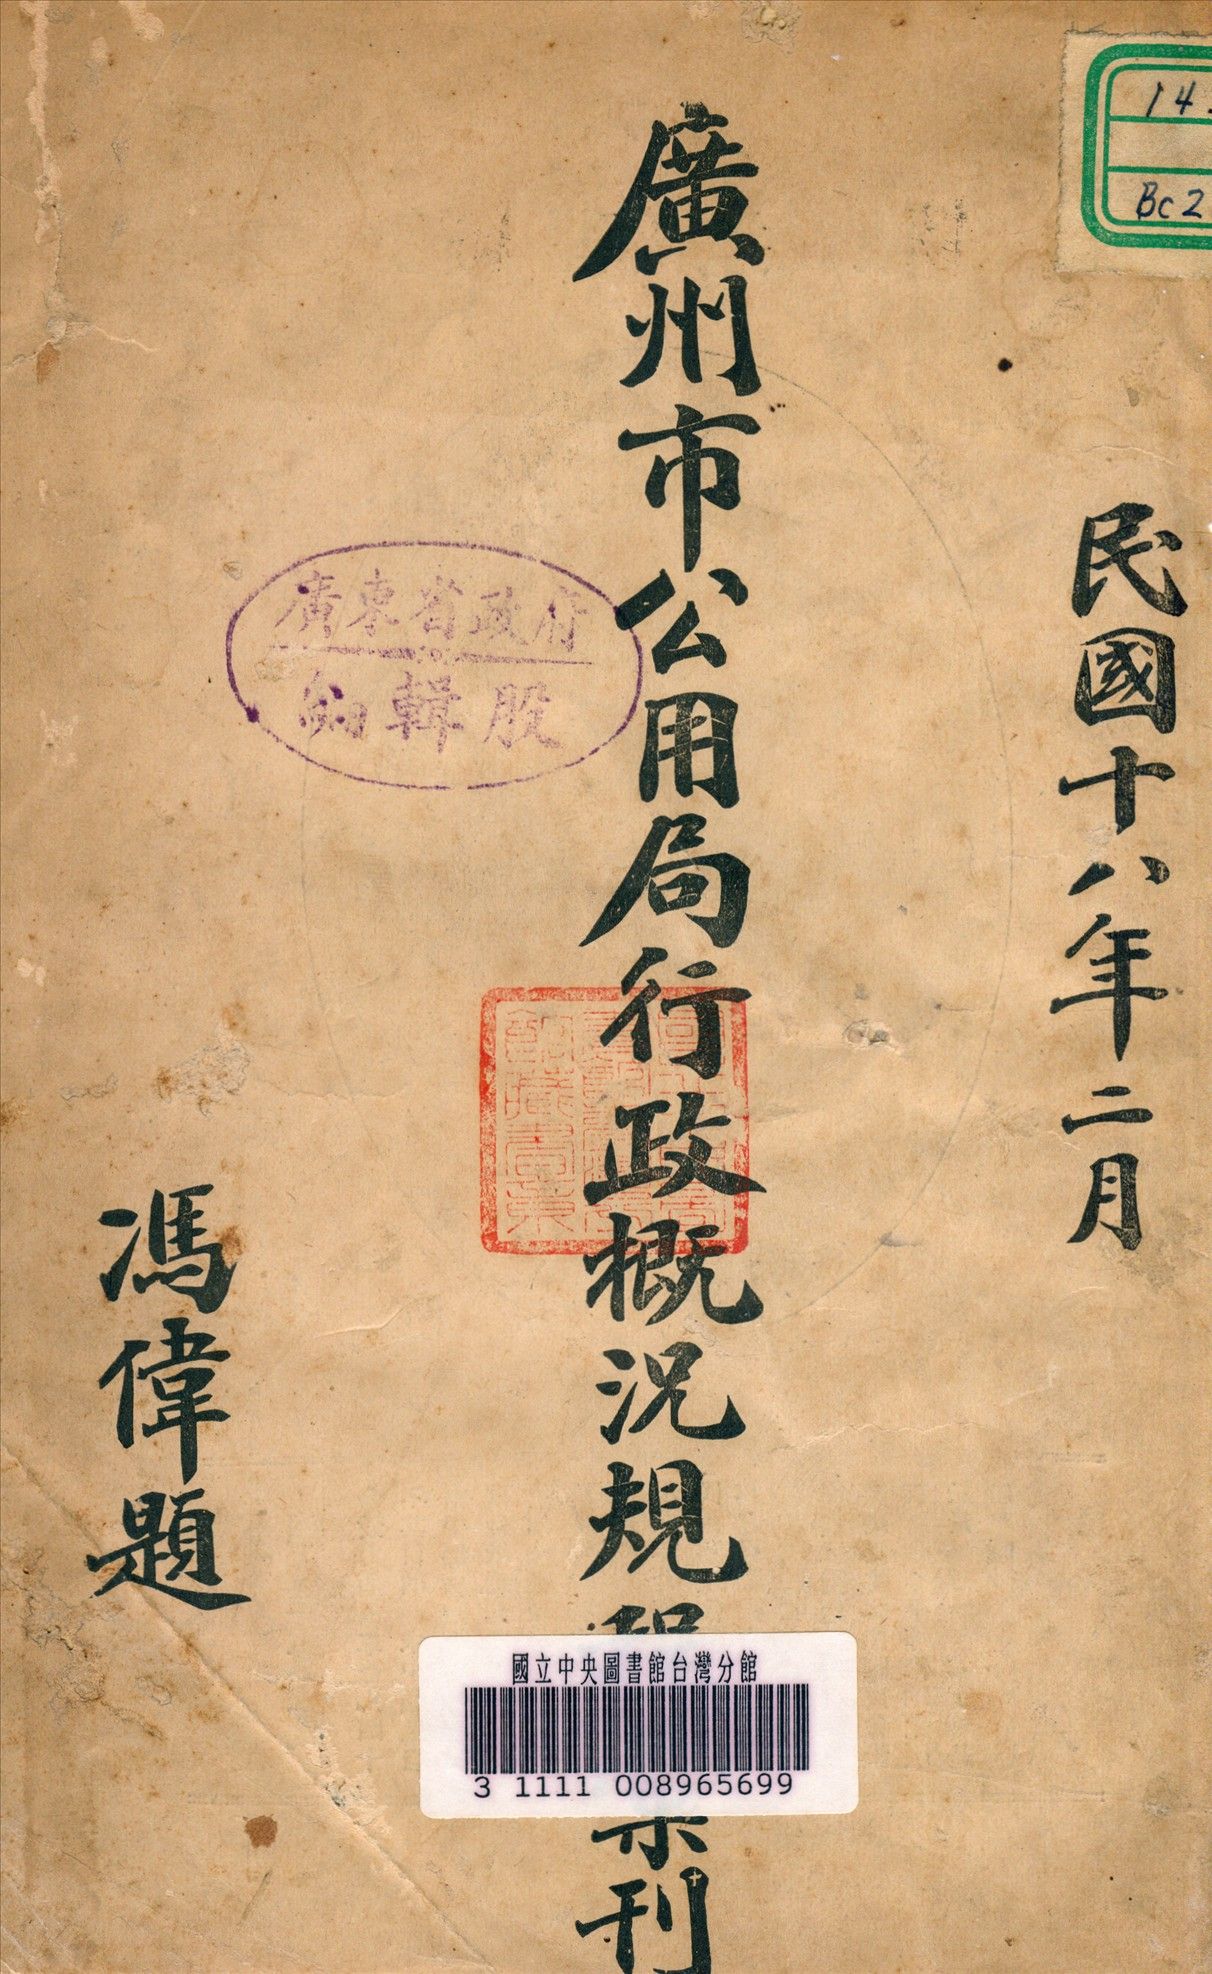 民國十八年二月
廣州市公用局行政概況規
刊
馮偉題
廣東省政府
編輯股
14
Bc2
國立中央圖書館台灣分館
3 1111 008965699